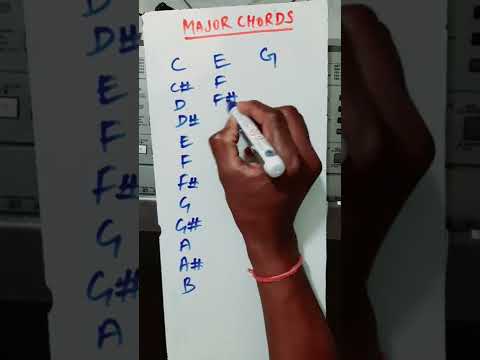 MAJOR CHORDS
C E G
C# F
D F#
D#
E
F
F#
G
G#
A
A#
B
D#
E
F
F#
G
G#
A